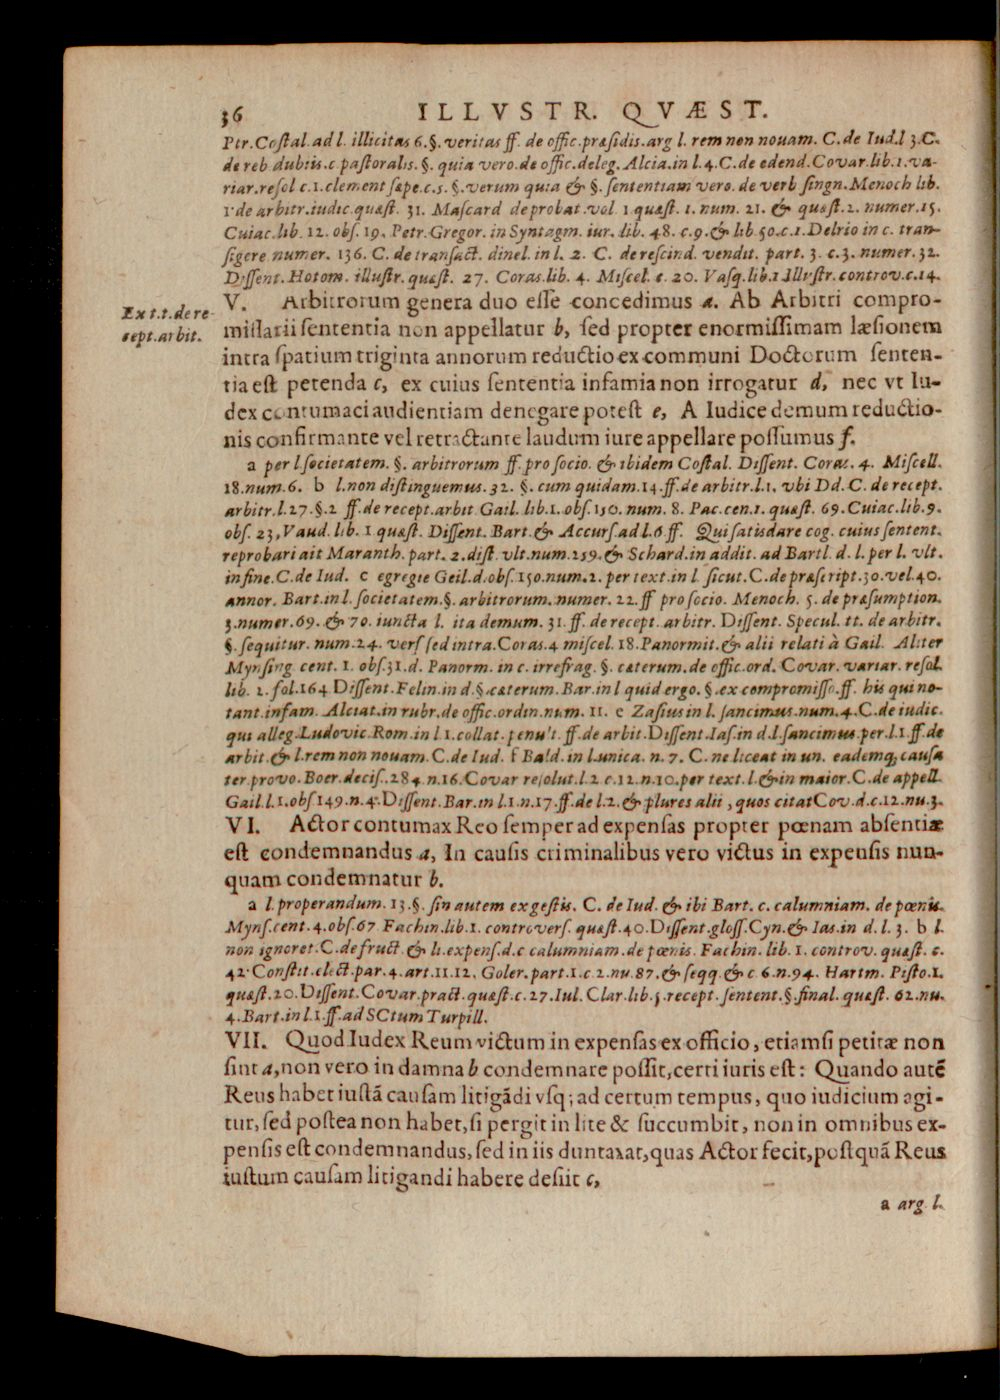 36 ILLVSTR. QVÆST.
Ptr. Costal. ad l. illicitas 6. §. veritas ff. de offic. præsidis. arg l. rem non nouam. C. de Iud. l 3. C.
de reb dubiis. c pastoralis. §. quia vero. de offic. deleg. Alcia. in l. 4. C. de edend. Covar. lib. 1. va-
riar. resol c. 1. clement sæpe. c. 5. §. verum quia & §. sententiam vero. de verb singn. Menoch lib.
1 de arbitr. iudic. quæst. 31. Mascard de probat. vol 1 quæst. 1. num. 21. & quæst. 2. numer. 15.
Cuiac. lib. 12. obs. 19. Petr. Gregor. in Syntagm. iur. lib. 48. c. 9. & lib 50. c. 1. Delrio in c. tran-
sigere numer. 136. C. de transact. dinel. in l. 2. C. de rescind. vendit. part. 3. c. 3. numer. 32.
Dissent. Hotom. illustr. quæst. 27. Coras. lib. 4. Miscel. c. 20. Vasq. lib. 1 Illustr. controv. c. 14.
Ex t. t. de re-
cept. arbit.
V. Arbitrorum genera duo esse concedimus a. Ab Arbitri compro-
missarii sententia non appellatur b, sed propter enormissimam læsionem
intra spatium triginta annorum reductio ex communi Doctorum senten-
tia est petenda c, ex cuius sententia infamia non irrogatur d, nec vt Iu-
dex contumaci audientiam denegare potest e, A Iudice demum reductio-
nis confirmante vel retractante laudum iure appellare possumus f.
a per l societatem. §. arbitrorum ff. pro socio. & ibidem Costal. Dissent. Coras. 4. Miscell.
18. num. 6. b l. non distinguemus. 32. §. cum quidam. 14. ff. de arbitr. l. 1. vbi Dd. C. de recept.
arbitr. l. 27. §. 2 ff. de recept. arbit Gail. lib. 1. obs. 150. num. 8. Pac. cen. 1. quæst. 69. Cuiac. lib. 9.
obs. 23, Vaud. lib. 1 quæst. Dissent. Bart. & Accurs. ad l. 6 ff. Qui satisdare cog. cuius sentent.
reprobari ait Maranth. part. 2. dist. vlt. num. 259. & Schard. in addit. ad Bartl. d. l. per l. vlt.
in fine. C. de Iud. c egregie Geil. d. obs. 150. num. 2. per text. in l sicut. C. de præscript. 30. vel. 40.
annor. Bart. in l. societatem. §. arbitrorum. numer. 22. ff pro socio. Menoch. 5. de præsumption.
3. numer. 69. & 70. iuncta l. ita demum. 31. ff. de recept. arbitr. Dissent. Specul. tt. de arbitr.
§. sequitur. num. 24. vers sed intra. Coras. 4 miscel. 18. Panormit. & alii relati à Gail. Aliter
Mynsing cent. 1. obs. 31. d. Panorm. in c. irrefrag. §. cæterum. de offic. ord. Covar. variar. resol.
lib. 2. fol. 164 Dissent. Felin. in d. §. cæterum. Bar. in l quid ergo. §. ex compromisso. ff. his qui no-
tant. infam. Alciat. in rubr. de offic. ordin. num. 11. e Zasius in l. sancimus. num. 4. C. de iudic.
qui alleg. Ludovic. Rom. in l 1. collat. penult. ff. de arbit. Dissent. Ias. in d. l. sancimus. per. l. 1. ff. de
arbit. & l. rem non nouam. C. de Iud. f Bald. in l. unica. n. 7. C. ne liceat in un. eademq; causa
ter. provo. Boer. decis. 284. n. 16. Covar resolut. l 2 c. 12. n. 10. per text. l. & in maior. C. de appell.
Gail. l. 1. obs 149. n. 4. Dissent. Bar. in l. 1. n. 17. ff. de l. 2. & plures alii, quos citat Cov. d. c. 12. nu. 3.
VI. Actor contumax Reo semper ad expensas propter pœnam absentiæ
est condemnandus a, In causis criminalibus vero victus in expensis nun-
quam condemnatur b.
a l. properandum. 13. §. sin autem ex gestis. C. de Iud. & ibi Bart. c. calumniam. de pœnis.
Myns. cent. 4. obs. 67 Fachin. lib. 1. controvers. quæst. 40. Dissent. gloss. Cyn. & Ias. in d. l. 3. b l.
non ignoret. C. de fruct. & li. expens. d. c calumniam. de pœnis. Fachin. lib. 1. controv. quæst. c.
42. Constit. elect. par. 4. art. 11. 12. Goler. part. 1. c. 2. nu. 87. & seqq. & c 6. n. 94. Hartm. Pisto. 1.
quæst. 20. Dissent. Covar. pract. quæst. c. 27. Iul. Clar. lib. 5. recept. sentent. §. final. quæst. 62. nu.
4. Bart. in l. 1. ff. ad SCtum Turpill.
VII. Quod Iudex Reum victum in expensas ex officio, etiamsi petitæ non
sint a, non vero in damna b condemnare possit, certi iuris est: Quando autē
Reus habet iustā causam litigādi vsq; ad certum tempus, quo iudicium agi-
tur, sed postea non habet, si pergit in lite & succumbit, non in omnibus ex-
pensis est condemnandus, sed in iis duntaxat, quas Actor fecit, postquā Reus
iustum causam litigandi habere desiit c,
a arg l.